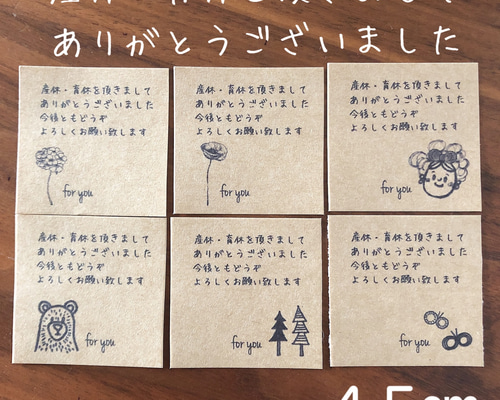 ありがとうございました
産休・育休を頂きまして
ありがとうございました
今後ともどうぞ
よろしくお願い致します
for you
産休・育休を頂きまして
ありがとうございました
今後ともどうぞ
よろしくお願い致します
for you
産休・育休を頂きまして
ありがとうございました
今後ともどうぞ
よろしくお願い致します
for you
産休・育休を頂きまして
ありがとうございました
今後ともどうぞ
よろしくお願い致します
for you
産休・育休を頂きまして
ありがとうございました
今後ともどうぞ
よろしくお願い致します
for you
産休・育休を頂きまして
ありがとうございました
今後ともどうぞ
よろしくお願い致します
for you